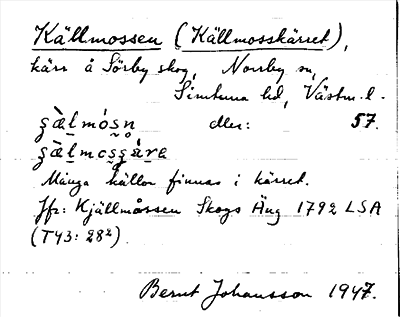 Källmossen (Källmosskärret),
kärr å Sörby skog, Norrby sn,
Simtuna hd, Västm. l.
eller: 57.
Många källor finnas i kärret.
Jfr: Kjällmåssen Skogs Äng 1792 LSA
(T43: 28²).
Bernt Johansson 1947.